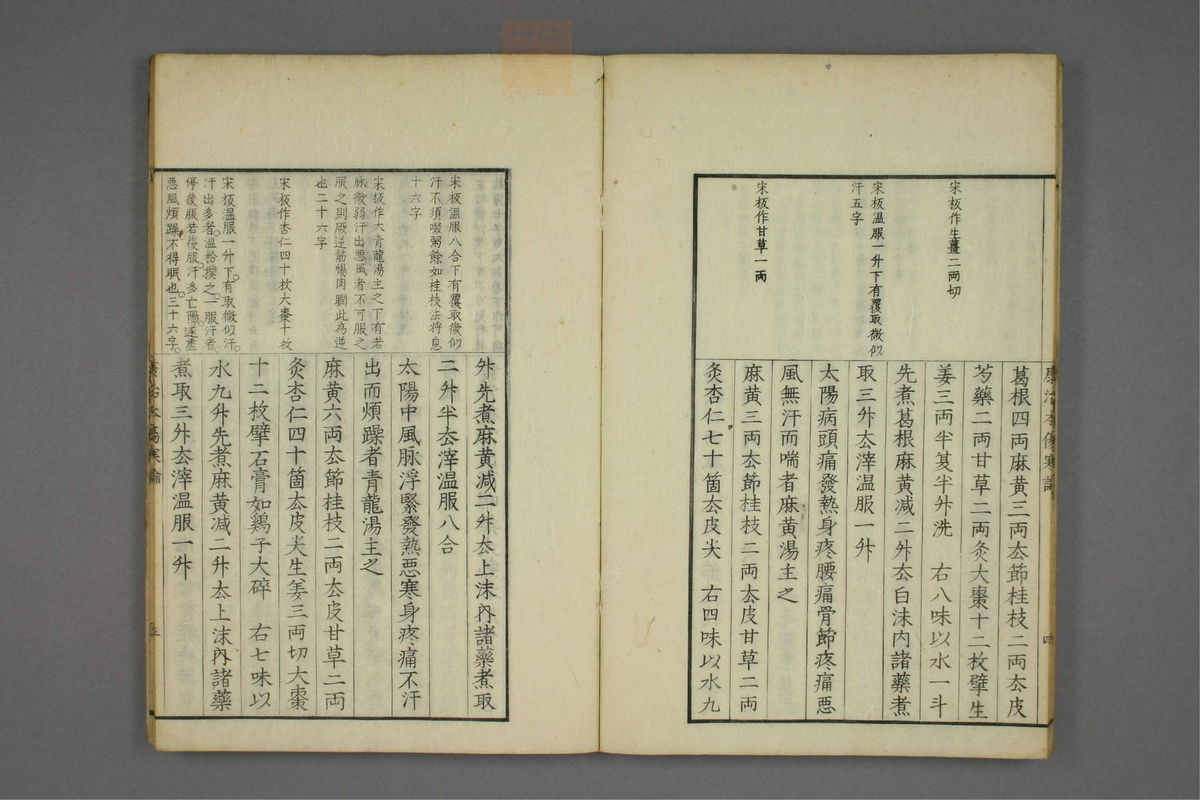 康治本傷寒論
宋板作生薑二両切
宋板温服一升下有覆取微似
汗五字
宋板作甘草一両
葛根四両麻黄三両厺節桂枝二両厺皮
芍藥二両甘草二両炙大棗十二枚擘生
姜三両半夏半升洗　右八味以水一斗
先煮葛根麻黄减二升厺白沫内諸藥煮
取三升厺滓温服一升
太陽病頭痛發熱身疼腰痛骨節疼痛悪
風無汗而喘者麻黄湯主之
麻黄三両厺節桂枝二両厺皮甘草二両
炙杏仁七十箇厺皮尖　右四味以水九
宋板温服八合下有覆取微似
汗不須啜粥餘如桂枝法将息
十六字
宋板作大青龍湯主之下有若
脉微弱汗出悪風者不可服之
服之則厥逆筋惕肉瞤此為逆
也二十六字
宋板作杏仁四十枚大棗十枚
宋板温服一升下有取微似汗
汗出多者温粉撲之一服汗者
停後服若復服汗多亡陽遂虚
悪風煩躁不得眠也三十六字
升先煮麻黄减二升厺上沫内諸藥煮取
二升半厺滓温服八合
太陽中風脉浮緊發熱悪寒身疼痛不汗
出而煩躁者青龍湯主之
麻黄六両厺節桂枝二両厺皮甘草二両
炙杏仁四十箇厺皮尖生姜三両切大棗
十二枚擘石膏如鶏子大碎　右七味以
水九升先煮麻黄减二升厺上沫内諸藥
煮取三升厺滓温服一升